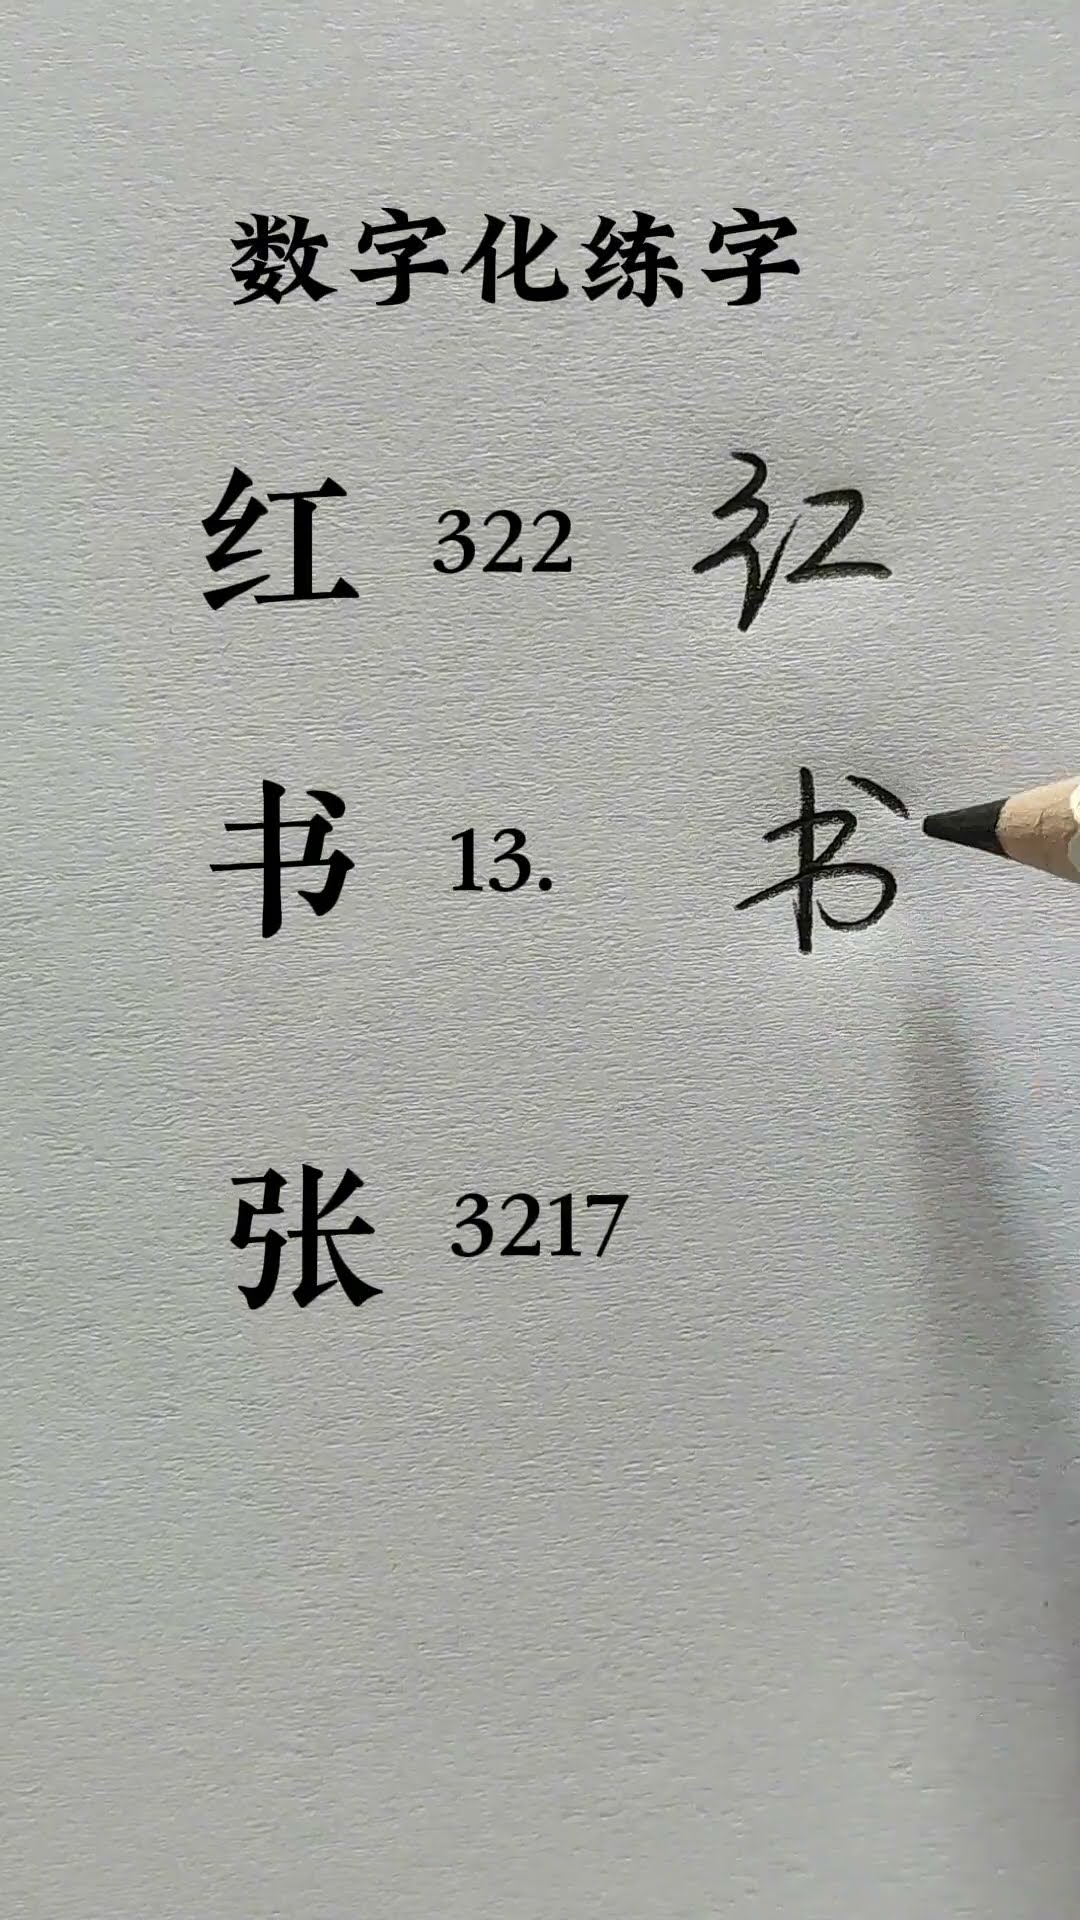 数字化练字
红 322 红
书 13. 书
张 3217